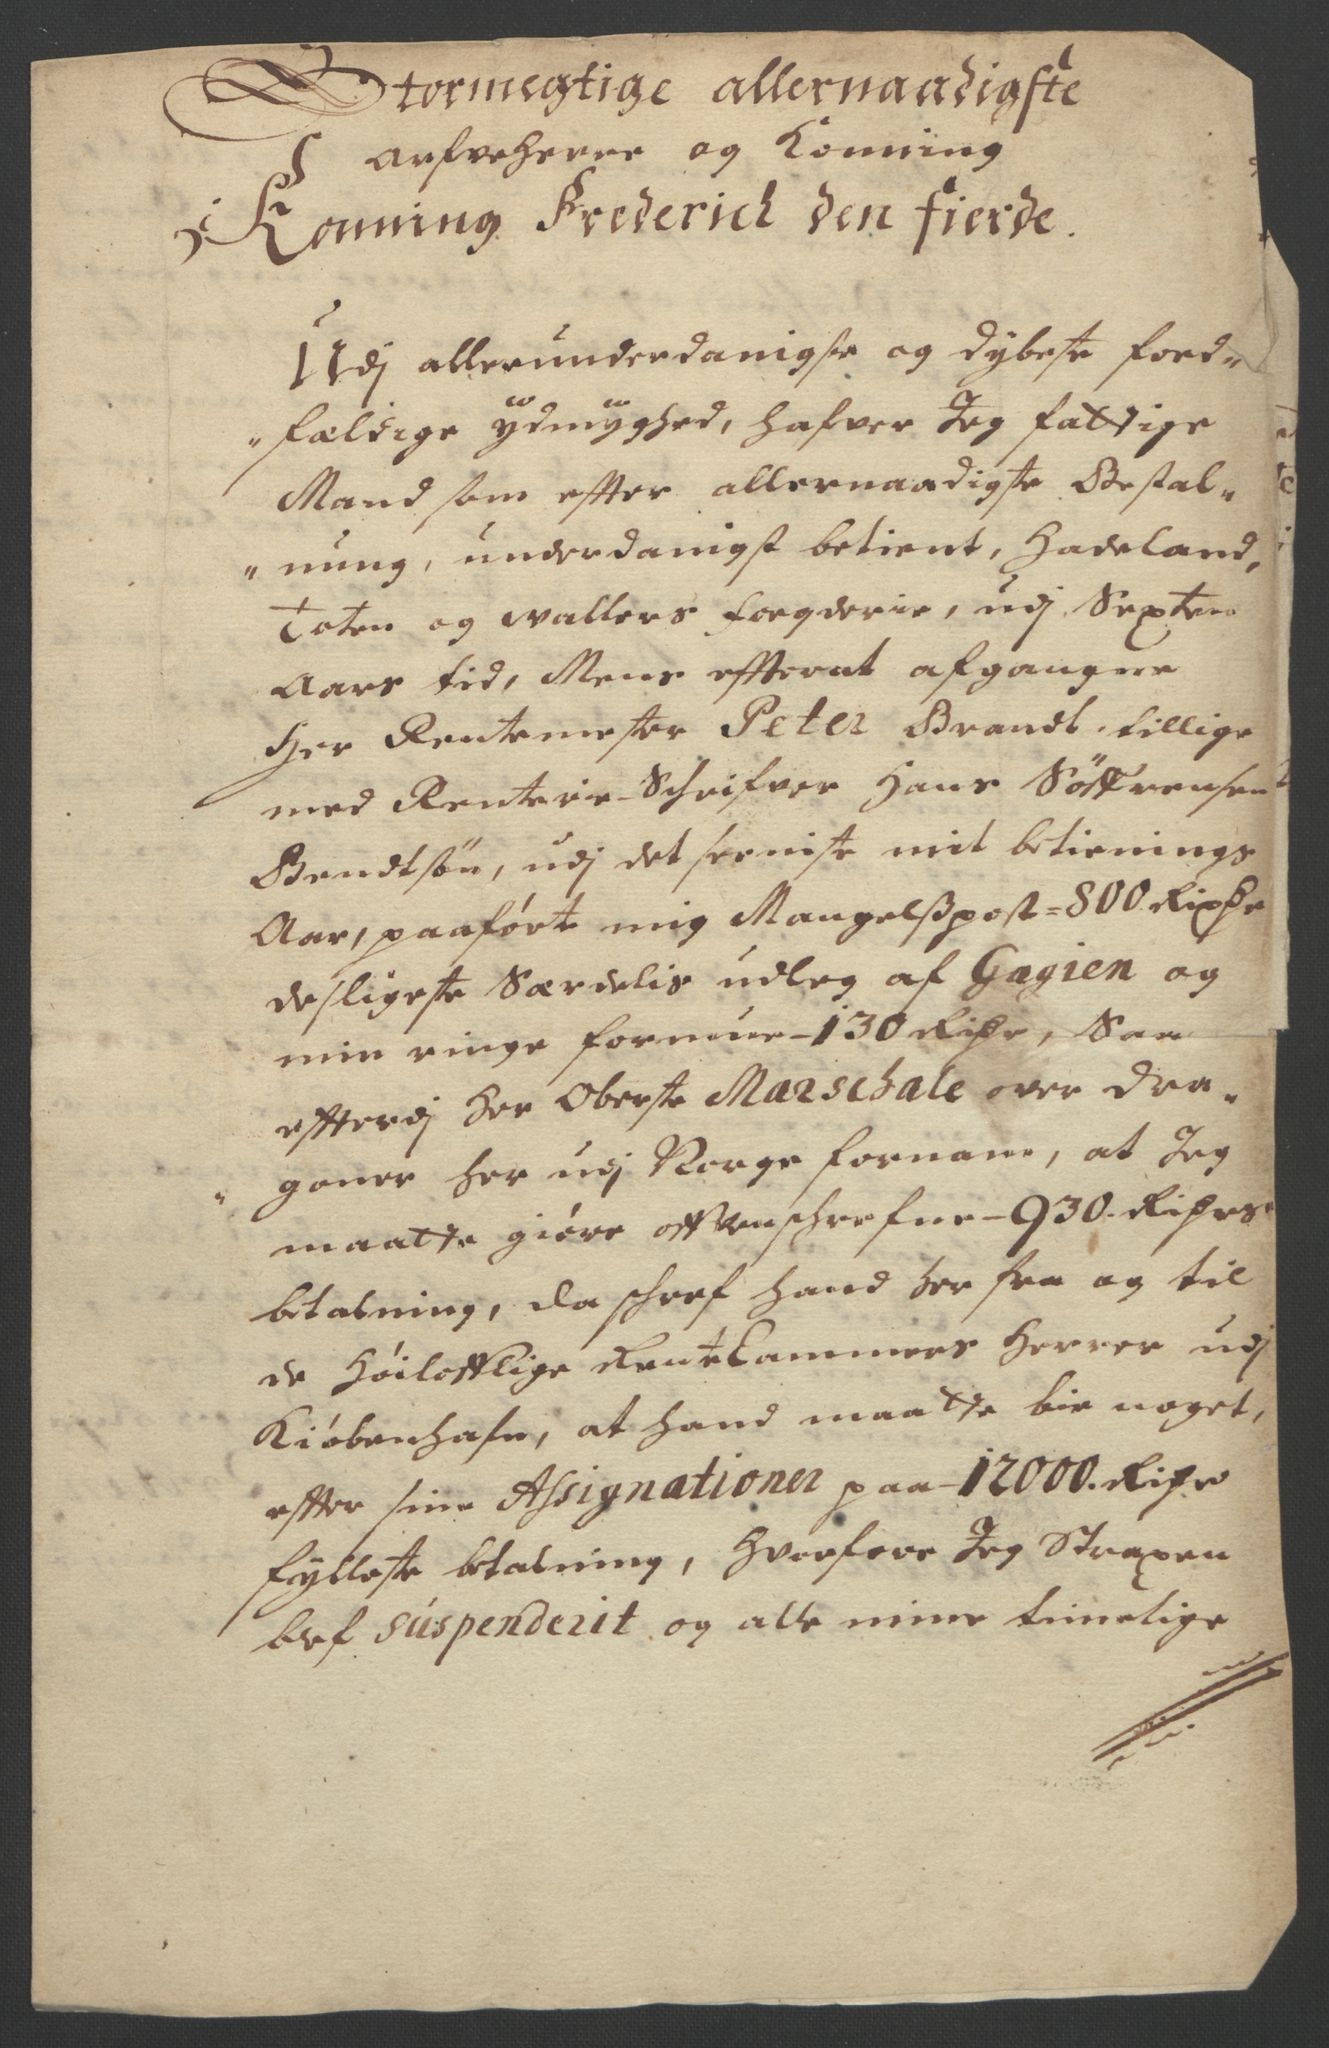 Stormegtige allernaadigste
Arfveherre og Konning
Konning Frederich den fierde.
Udj allerunderdanigste og dybeste foed„
„fældige ydmyghed, hafver Jeg fattige
Mand som efter allernaadigste Bestal„
„nung, underdanigst betient, Hadeland,
Toten og Wallers foegderie, udj Sexten
Aars tid, Mens efterat afgangne
Her Rentemester Peter Brandt tillige
med Renterie-Schrifver Hans Söffrensen
Bendtsön, udj det seeniste mit betienings
Aar, paaført mig Mangelsspost = 800 Rixdr
desligeste Særdelis udleg af Gagien og
min ringe formue - 130 Rixdr, Saa
efterdj Her Oberste Marschalc over Dra„
„goner her udj Norge fornam, at Jeg
maatte giøre offvenschrefne - 930. Rixdrs
betalning, da schref hand her fra og til
de Høiloflige RenteCammers Herrer udj
Kiøbenhafn, at hand maatte bie noget,
efter sine Assignationer paa - 12000. Rixdr
fylleste betalning, Hvorfore Jeg Straxen
blef suspenderit og alle mine timelige